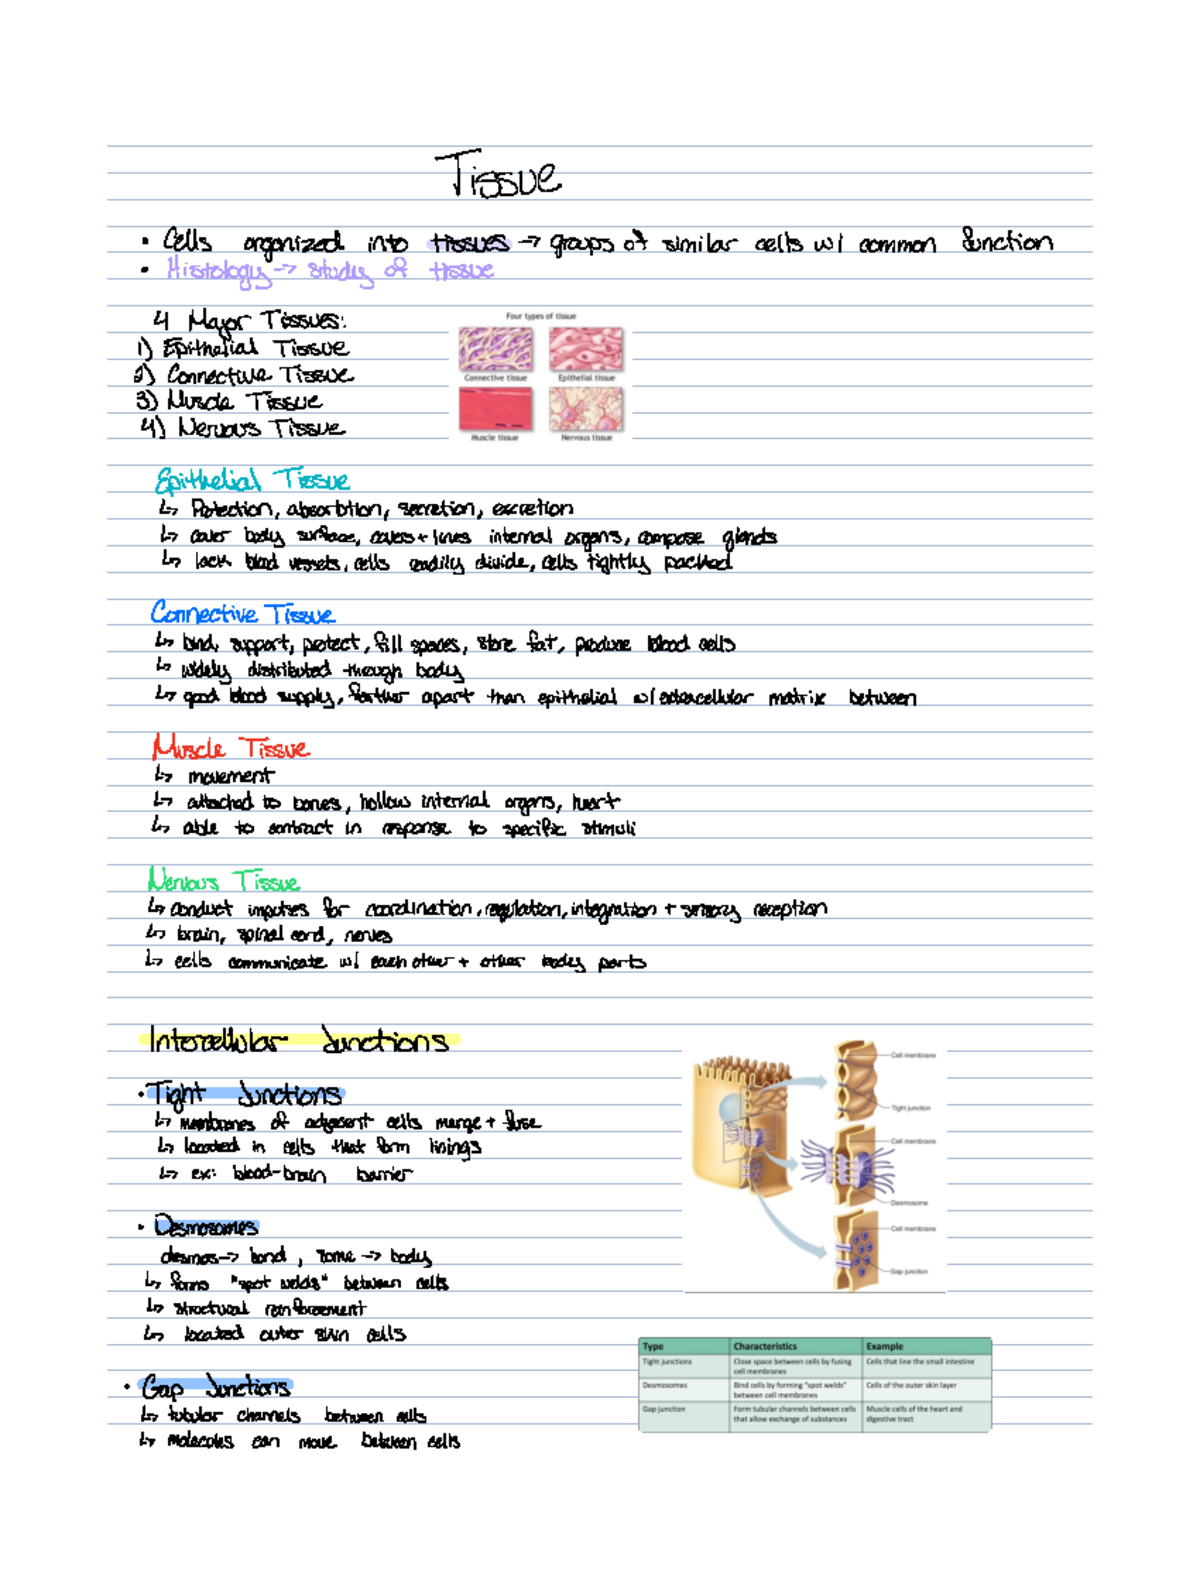 Tissue
• Cells organized into tissues → groups of similar cells w/ common function
• Histology → study of tissue
4 Major Tissues:
1) Epithelial Tissue
2) Connective Tissue
3) Muscle Tissue
4) Nervous Tissue
Four types of tissue
Connective tissue Epithelial tissue
Muscle tissue Nervous tissue
Epithelial Tissue
↳ Protection, absorbtion, secretion, excretion
↳ cover body surface, covers + lines internal organs, compose glands
↳ lack blood vessels, cells readily divide, cells tightly packed
Connective Tissue
↳ bind, support, protect, fill spaces, store fat, produce blood cells
↳ widely distributed through body
↳ good blood supply, farther apart than epithelial w/ extracellular matrix between
Muscle Tissue
↳ movement
↳ attached to bones, hollow internal organs, heart
↳ able to contract in response to specific stimuli
Nervous Tissue
↳ conduct impulses for coordination, regulation, integration + sensory reception
↳ brain, spinal cord, nerves
↳ cells communicate w/ each other + other body parts
Intercellular Junctions
• Tight Junctions
↳ membranes of adjacent cells merge + fuse
↳ located in cells that form linings
↳ ex: blood-brain barrier
• Desmosomes
desmos → bond, some → body
↳ forms "spot welds" between cells
↳ structural reinforcement
↳ located outer skin cells
• Gap Junctions
↳ tubular channels between cells
↳ molecules can move between cells
Cell membrane
Tight junction
Cell membrane
Desmosome
Cell membrane
Gap junction
Type Characteristics Example
Tight junctions Close space between cells by fusing Cells that line the small intestine
cell membranes
Desmosomes Bind cells by forming "spot welds" Cells of the outer skin layer
between cell membranes
Gap junction Form tubular channels between cells Muscle cells of the heart and
that allow exchange of substances digestive tract